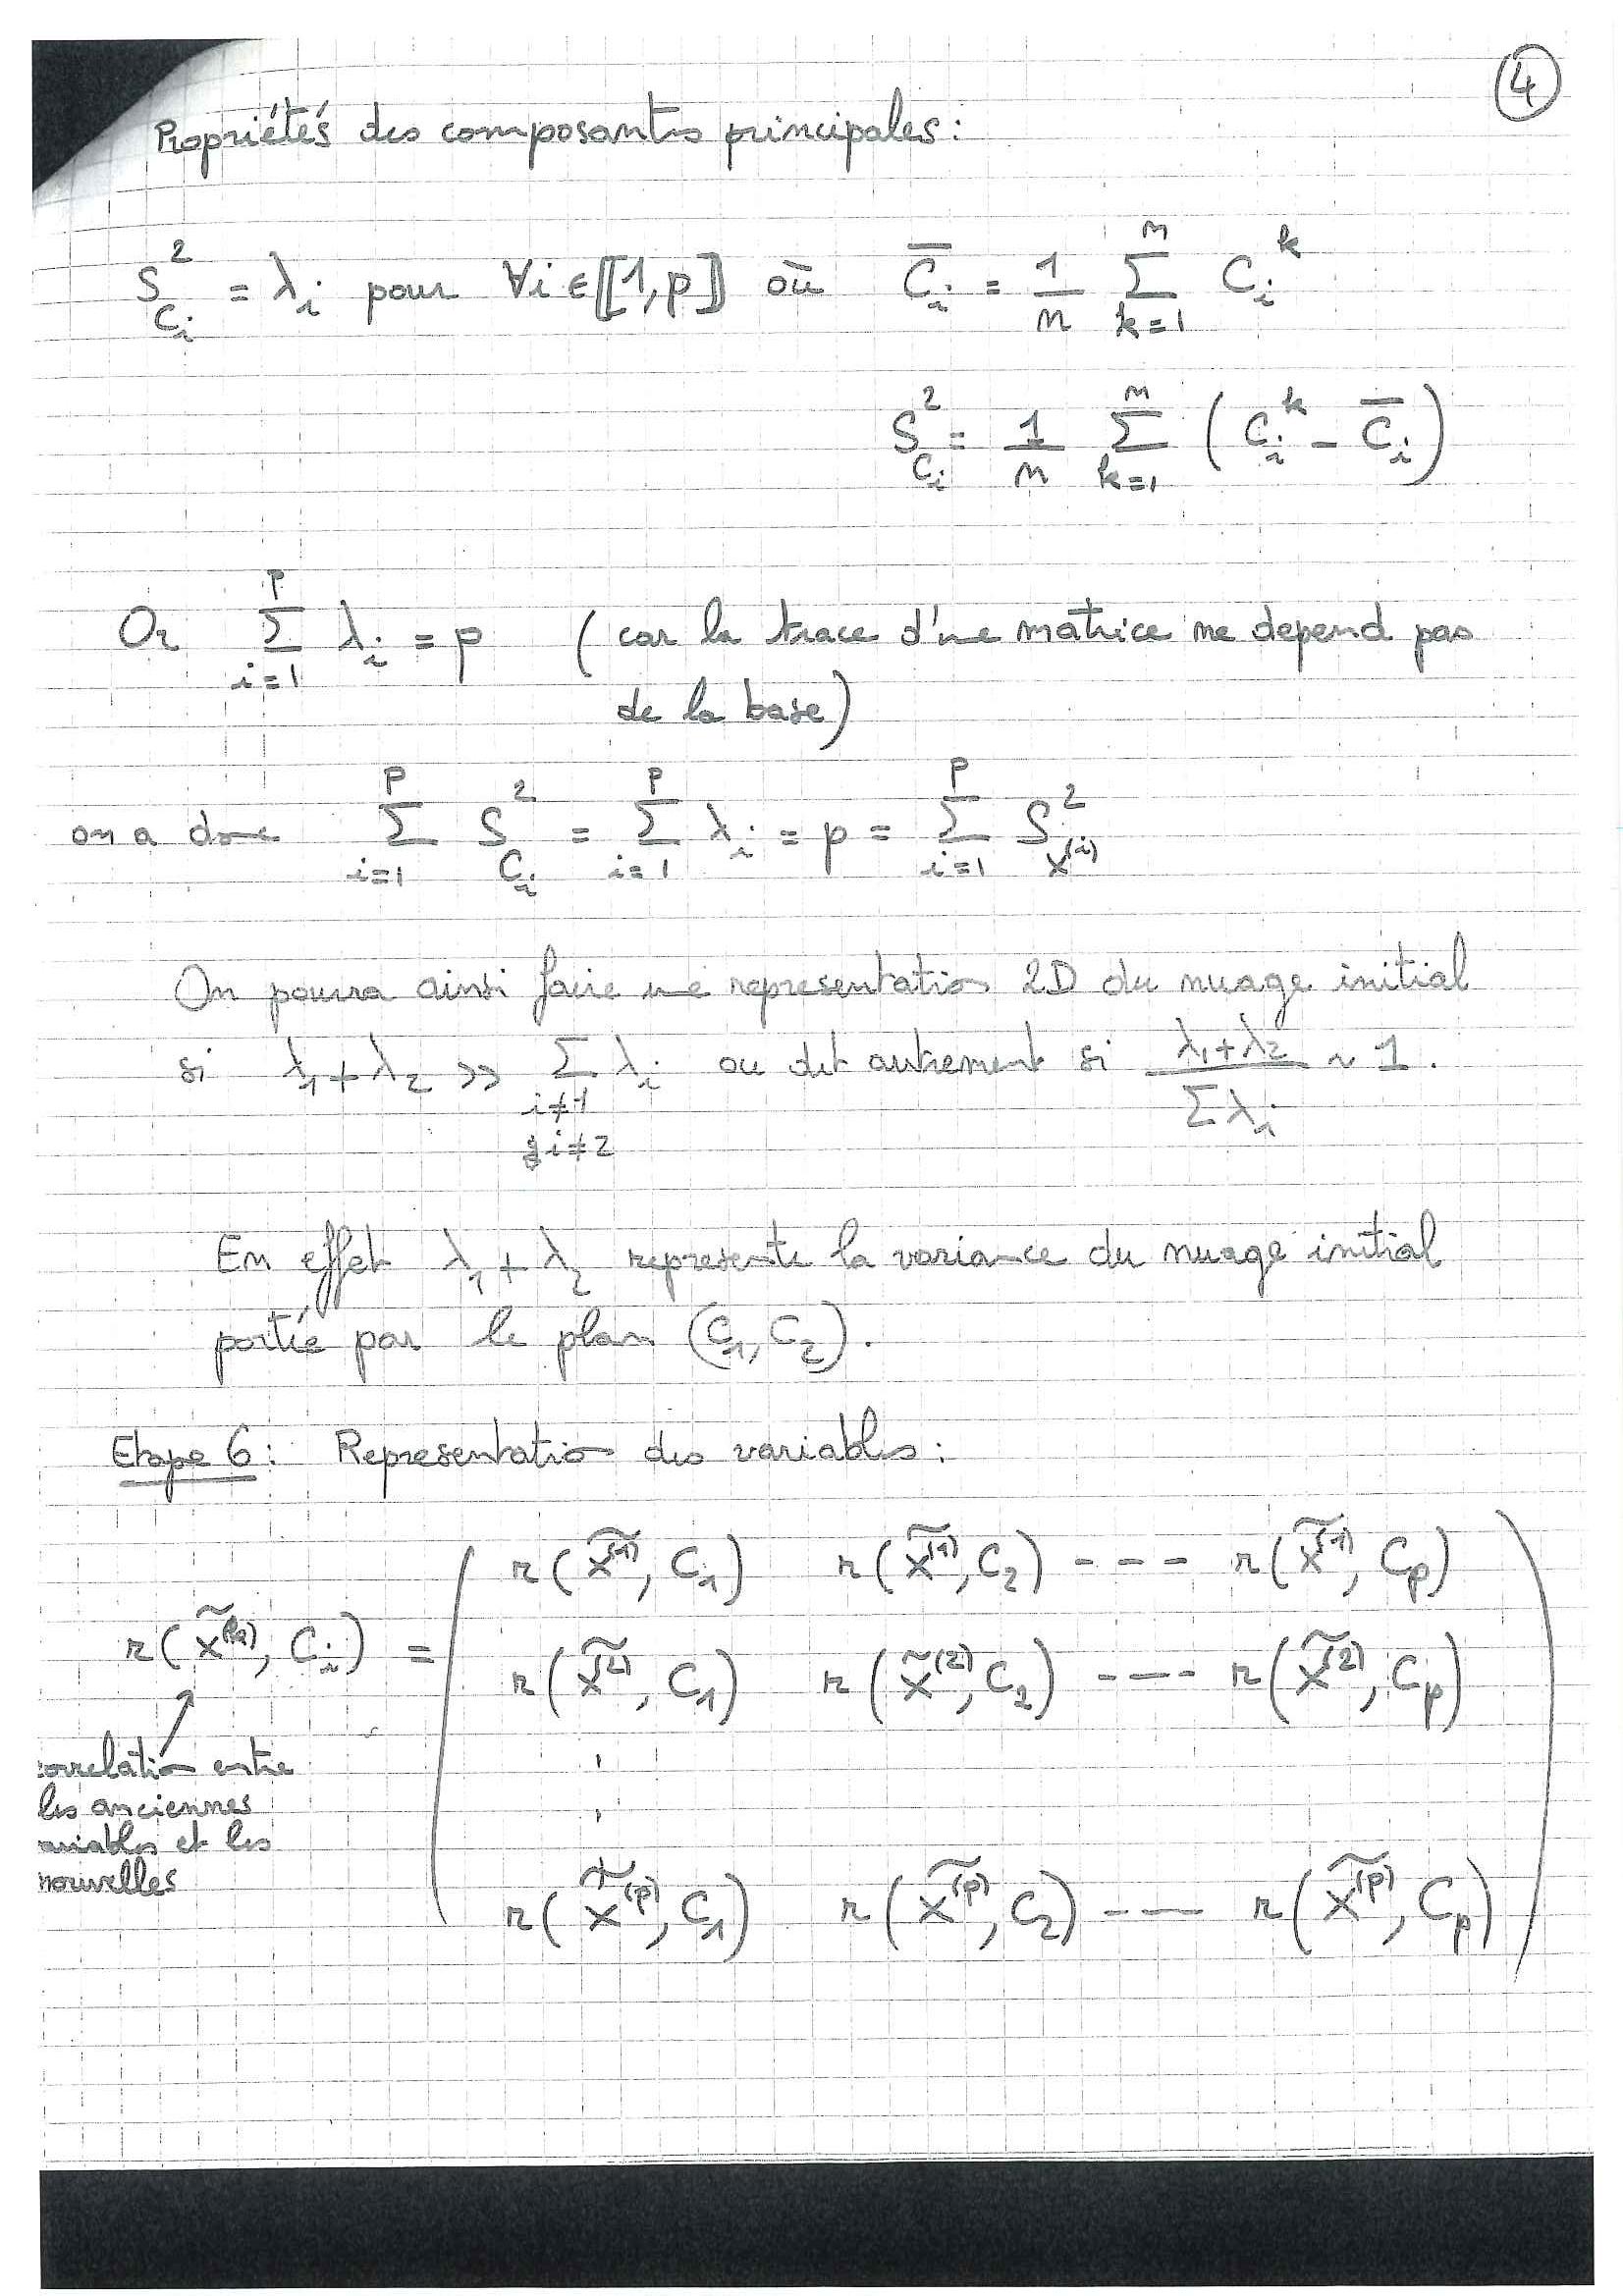 4
Propriétés des composantes principales :
S²_{C_i} = λ_i pour ∀i ∈ ⟦1,p⟧ où \overline{C_i} = \frac{1}{n} \sum_{k=1}^{n} C_i^k
S²_{C_i} = \frac{1}{n} \sum_{k=1}^{n} ( C_i^k - \overline{C_i} )
Or \sum_{i=1}^{p} λ_i = p ( car la trace d'une matrice ne depend pas
de la base)
on a donc \sum_{i=1}^{p} S²_{C_i} = \sum_{i=1}^{p} λ_i = p = \sum_{i=1}^{p} S²_{x^{(i)}}
On pourra ainsi faire une representation 2D du nuage initial
si λ_1 + λ_2 >> \sum_{i≠1 \\ i≠2} λ_i ou dit autrement si \frac{λ_1+λ_2}{\sum λ_i} ~ 1.
En effet λ_1 + λ_2 represente la variance du nuage initial
portée par le plan (C_1, C_2).
Etape 6 : Representation des variables :
r(\widetilde{x}^{(1)}, C_1) r(\widetilde{x}^{(1)}, C_2) --- r(\widetilde{x}^{(1)}, C_p)
r(\widetilde{x}^{(k)}, C_i) =
r(\widetilde{x}^{(2)}, C_1) r(\widetilde{x}^{(2)}, C_2) ---- r(\widetilde{x}^{(2)}, C_p)
correlation entre
les anciennes
variables et les
nouvelles
r(\widetilde{x}^{(p)}, C_1) r(\widetilde{x}^{(p)}, C_2) --- r(\widetilde{x}^{(p)}, C_p)